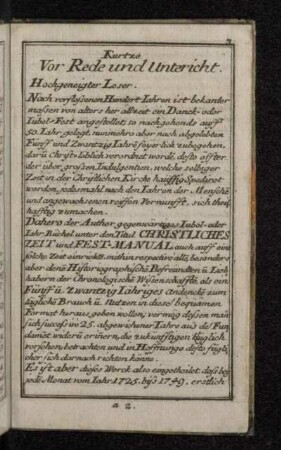 Kurtze
Vor Rede und Untericht.
Hochgeneigter Leser.
Nach verflossenen Hundert Jahren ist bekanter
massen von alters her allzeit ein Danck- oder
Jubel-Fest angestellet, so nachgehends auff
50. Jahr gelegt, nunmehro aber nach abgelebten
Fünff und Zwantzig Jahrē feyerlich zubegehen,
darū Christ-löblich verordnet worde, desto offter
der über großen Indulgentien, welche selbiger
Zeit in der Christlichen Kirche häuffig Spediret
worden, jedesmahl nach den Jahren der Menschē
und angewachsenen reiffen Vernunfft, sich theil
hafftig zu machen.
Dahero der Author gegenwärtiges Jubel- oder
Jahr-Büchel unter den Titul CHRISTLICHES
ZEIT und FEST-MANUAL auch auff eine
solche Zeit einrückt, mithin respectivè alle, besonders
aber denē Historiographischē Hefreundten ū Lieb
habern der Chronologische Wyßenschaffte, als ein
Fünff ū Zwantzig Jähriges Andencke zum
täglichē Brauch ū Nutzen in dieser bequamen
Format heraus geben wollen, vermög dessen man
sich successivè in 25. abgewichener Jahre aus de Fun
damēt anderū erinern, die zukunfftigen klüglich
vorsehen, betrachten und in Hoffnung desto fügli
cher sich darnach richten könne.
Es ist aber dieses Werck also eingetheilet, dass bey
jede Monat vom Jahr 1725. biß 1749. erstlich
a 2.